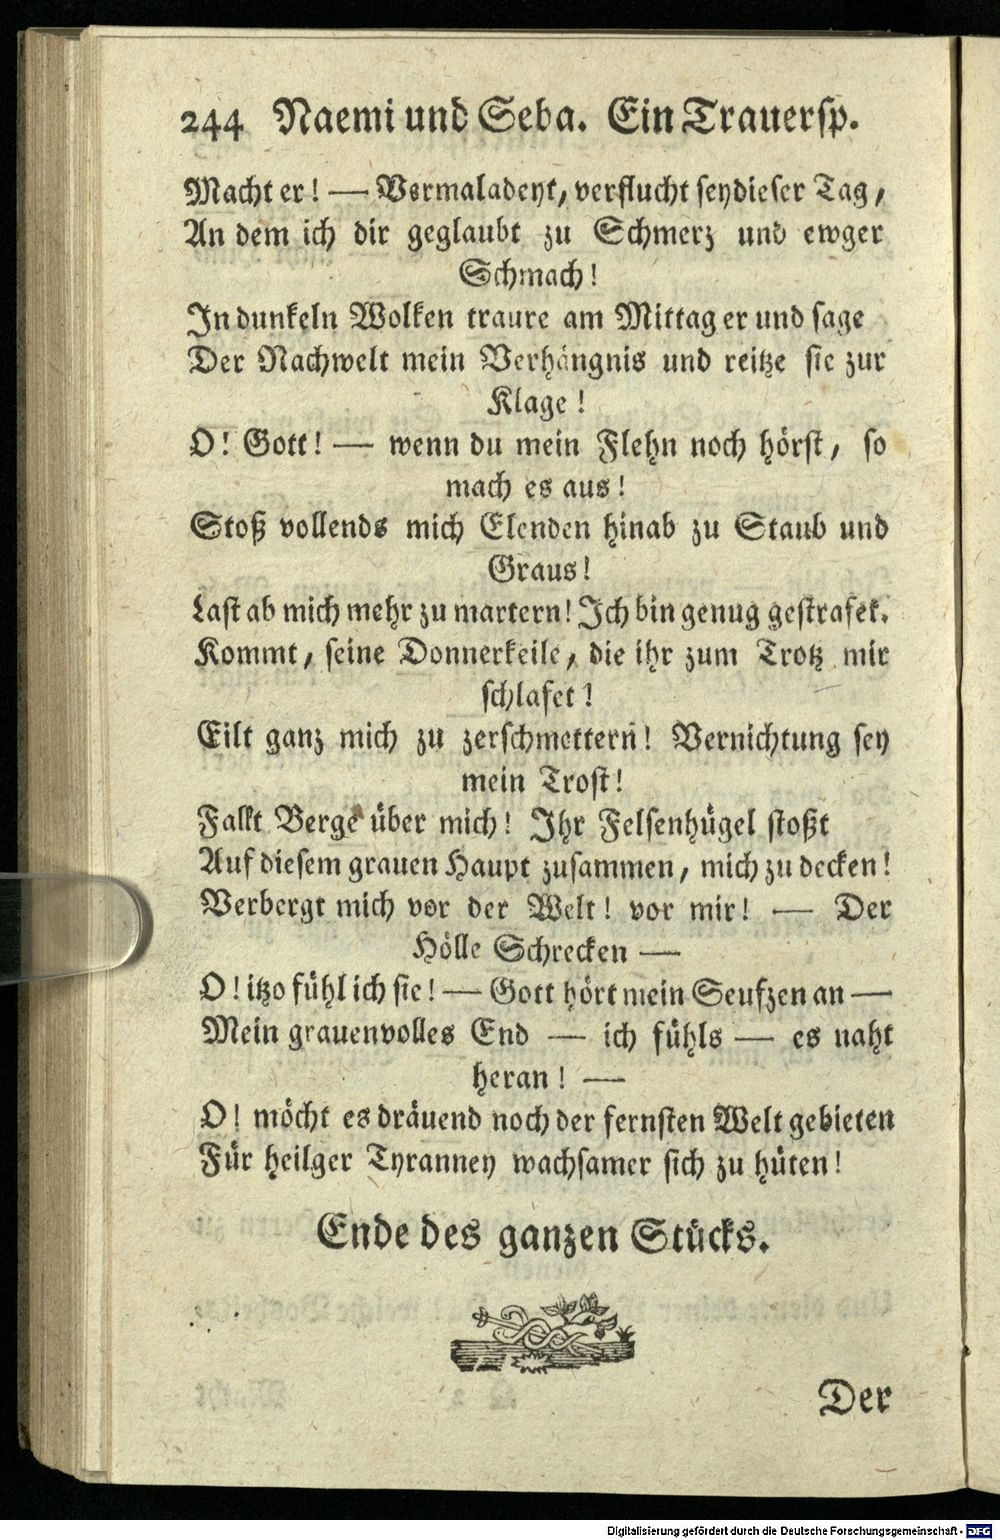 244 Naemi und Seba. Ein Trauersp.
Macht er! — Vermaladeyt, verflucht sey dieser Tag,
An dem ich dir geglaubt zu Schmerz und ewger
Schmach!
In dunkeln Wolken traure am Mittag er und sage
Der Nachwelt mein Verhängnis und reitze sie zur
Klage!
O! Gott! — wenn du mein Flehn noch hörst, so
mach es aus!
Stoß vollends mich Elenden hinab zu Staub und
Graus!
Last ab mich mehr zu martern! Ich bin genug gestrafet.
Kommt, seine Donnerkeile, die ihr zum Trotz mir
schlafet!
Eilt ganz mich zu zerschmettern! Vernichtung sey
mein Trost!
Fallt Berge über mich! Ihr Felsenhügel stoßt
Auf diesem grauen Haupt zusammen, mich zu decken!
Verbergt mich vor der Welt! vor mir! — Der
Hölle Schrecken —
O! itzo fühl ich sie! — Gott hört mein Seufzen an —
Mein grauenvolles End — ich fühls — es naht
heran! —
O! möcht es dräuend noch der fernsten Welt gebieten
Für heilger Tyranney wachsamer sich zu hüten!
Ende des ganzen Stücks.
Der
Digitalisierung gefördert durch die Deutsche Forschungsgemeinschaft - DFG